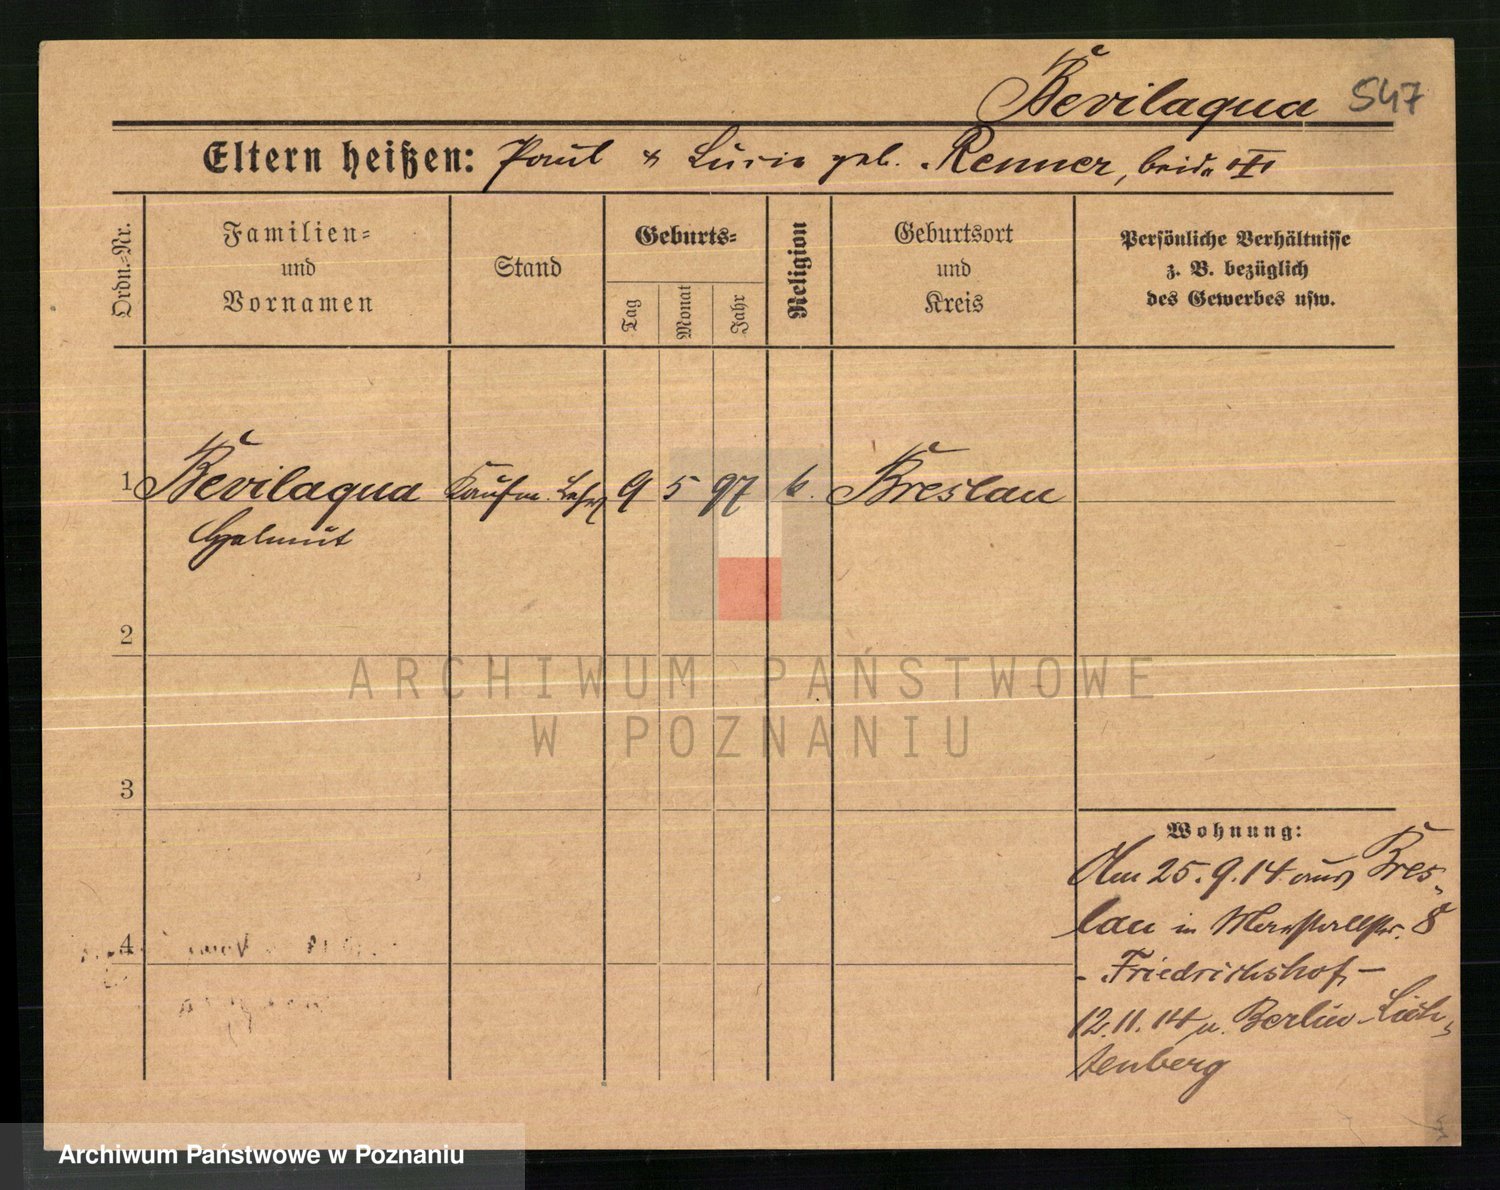 Bevilaqua 547
Eltern heißen: Paul & Lucie geb. Renner, beide
Ordn.-Nr.
Familien-
und
Vornamen
Stand
Geburts-
Tag
Monat
Jahr
Religion
Geburtsort
und
Kreis
Persönliche Verhältnisse
z. B. bezüglich
des Gewerbes usw.
1 Bevilaqua Kaufm. Lehrl 9 5 97 k. Breslau
Helmut
2
3
4
Wohnung:
Am 25.9.14 aus Bres-
lau in Marstallstr. 8
- Friedrichshof, -
12.11.14 n. Berlin-Lich-
tenberg
ARCHIWUM PAŃSTWOWE
W POZNANIU
Archiwum Państwowe w Poznaniu